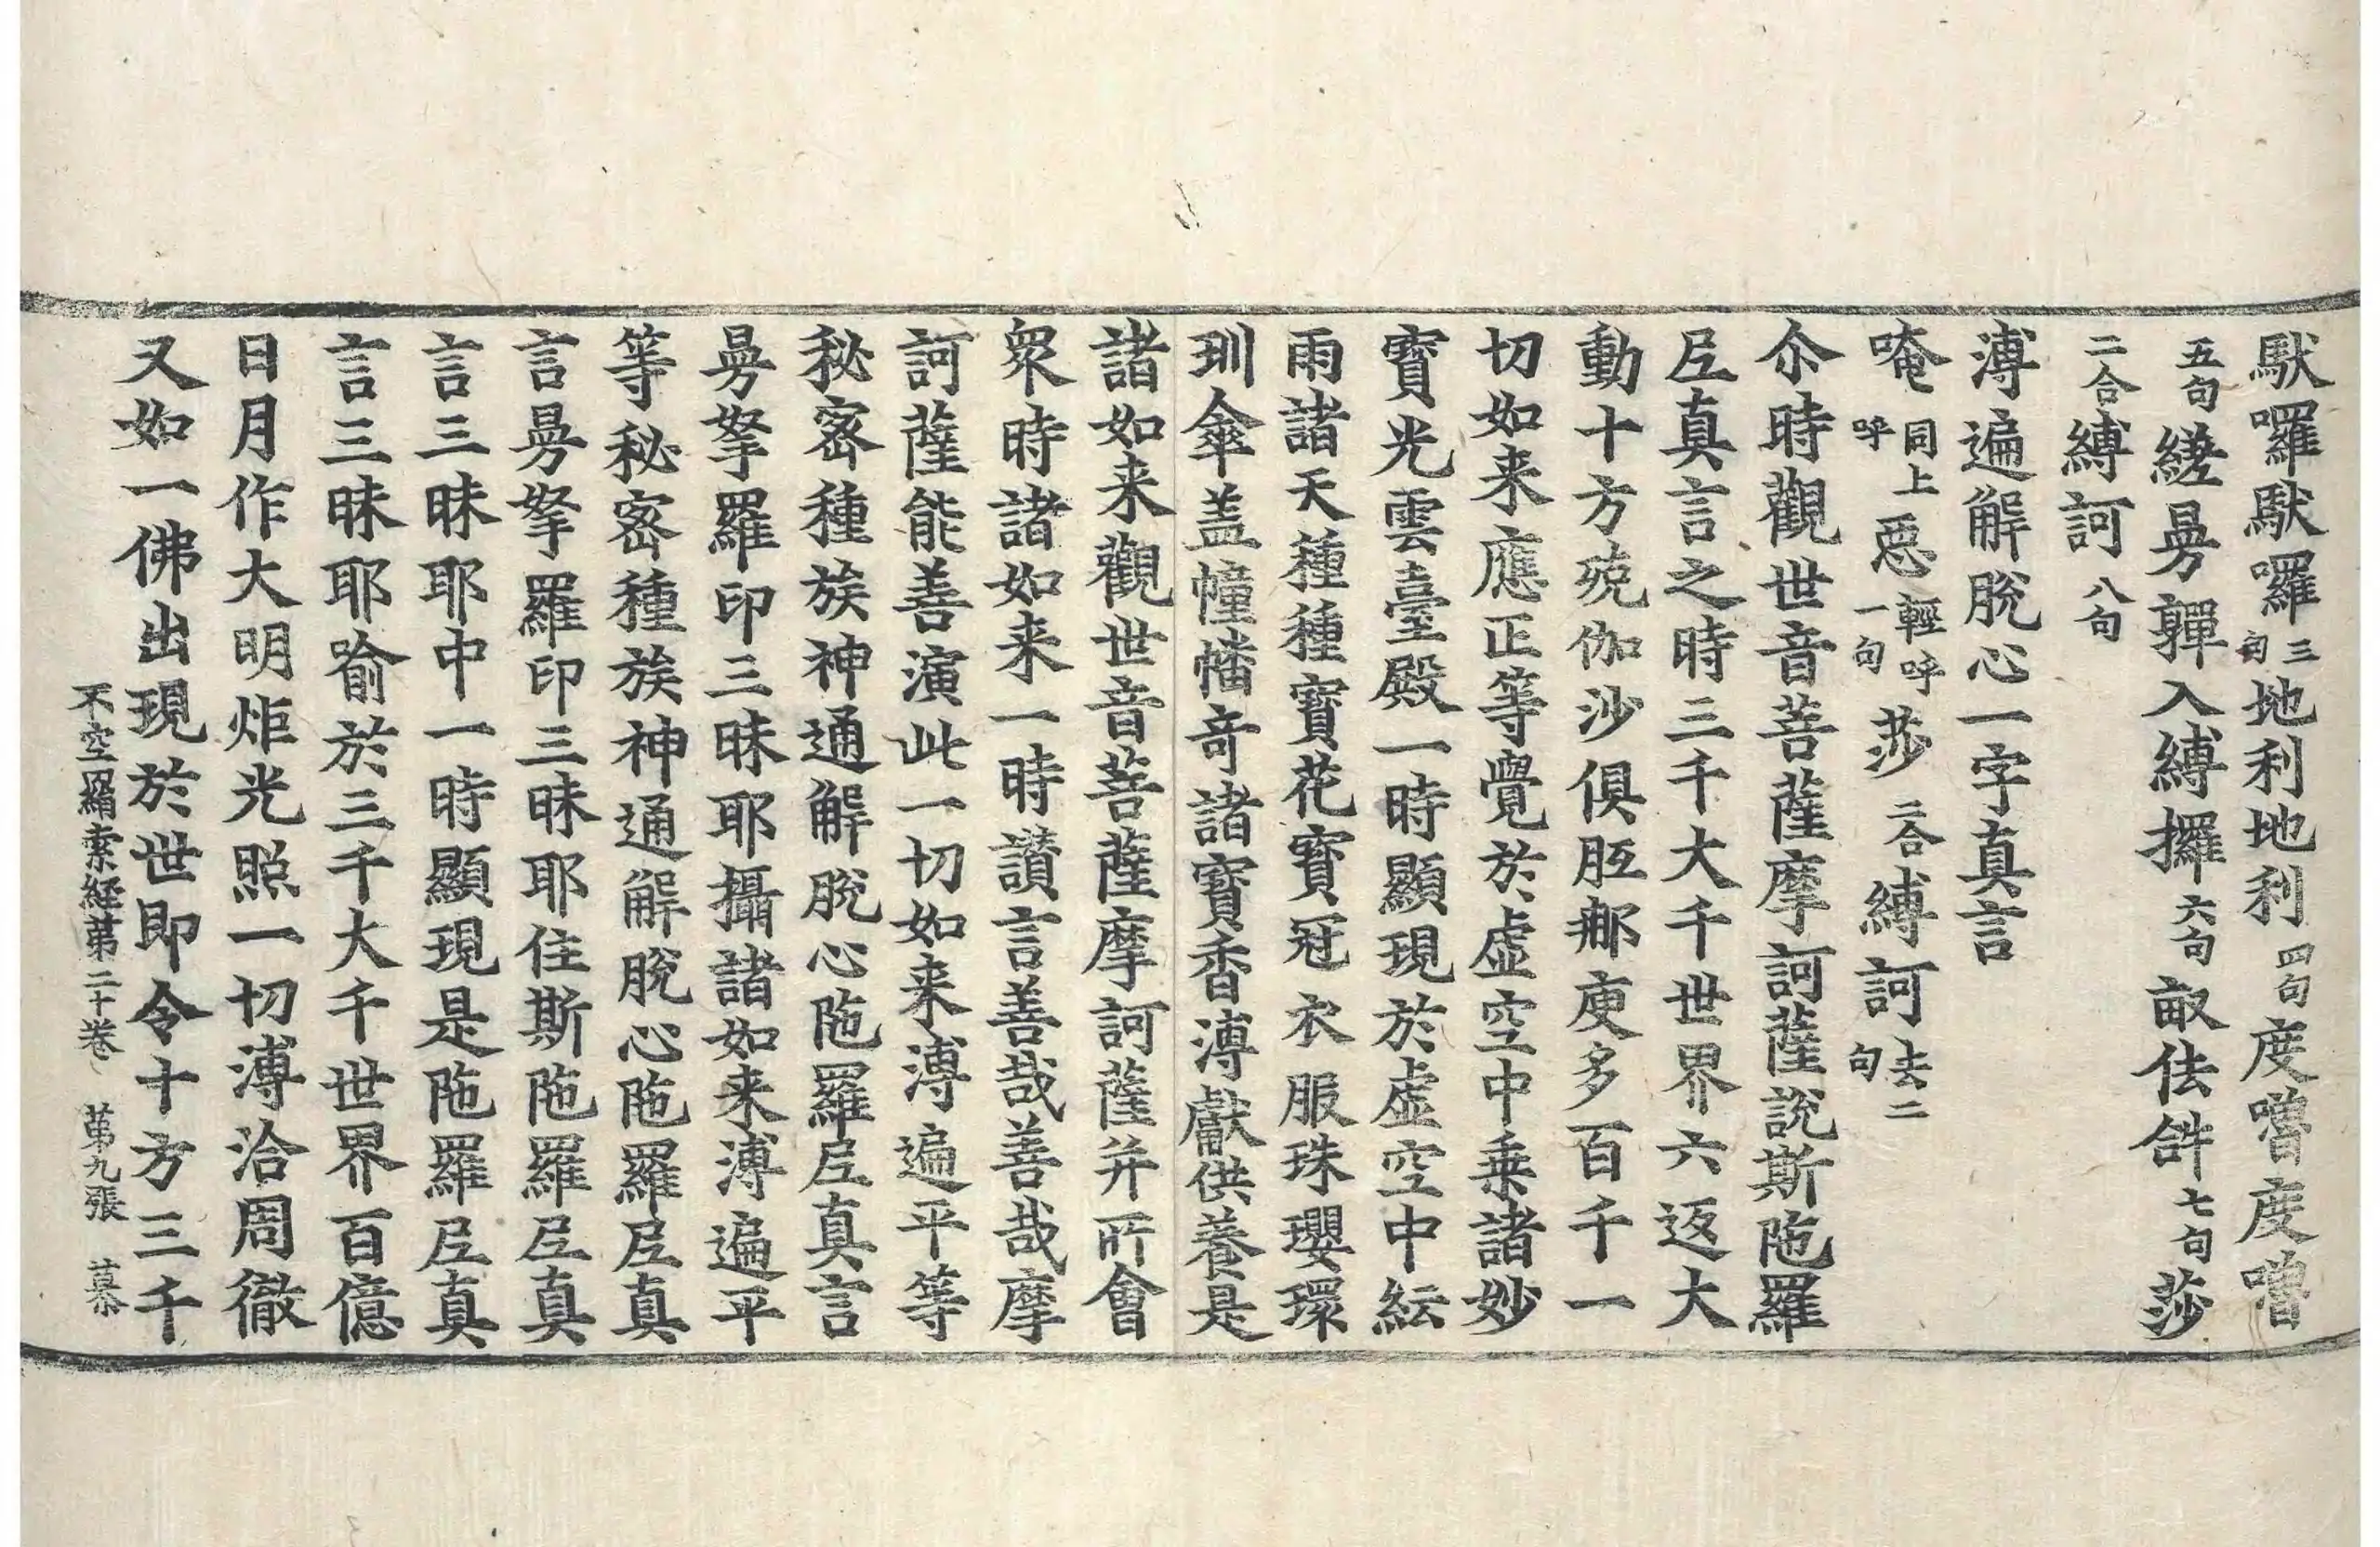 馱囉馱囉三句地利地利四句度嚕度嚕
五句縒曼嚲入縛攞六句㽃佉𤙖七句莎
二合縛訶八句
溥遍解脫心一字真言
唵同上呼惡輕呼一句莎二合縛訶去二句
尒時觀世音菩薩摩訶薩說斯陁羅
𡰱真言之時三千大千世界六返大
動十方殑伽沙俱胝𨚗庾多百千一
切如来應正等覺於虛空中乗諸妙
寶光雲臺殿一時顯現於虛空中紜
雨諸天種種寶花寶冠衣服珠瓔環
玔傘盖幢幡奇諸寶香溥獻供養是
諸如来觀世音菩薩摩訶薩并所會
衆時諸如来一時讃言善哉善哉摩
訶薩能善演此一切如来溥遍平等
秘密種族神通解脫心陁羅𡰱真言
曼拏羅印三昧耶攝諸如来溥遍平
等秘密種族神通解脫心陁羅𡰱真
言曼拏羅印三昧耶住斯陁羅𡰱真
言三昧耶中一時顯現是陁羅𡰱真
言三昧耶喻於三千大千世界百億
日月作大明炬光照一切溥洽周徹
又如一佛出現於世即令十方三千
不空羂索経苐二十卷 苐九張 慕